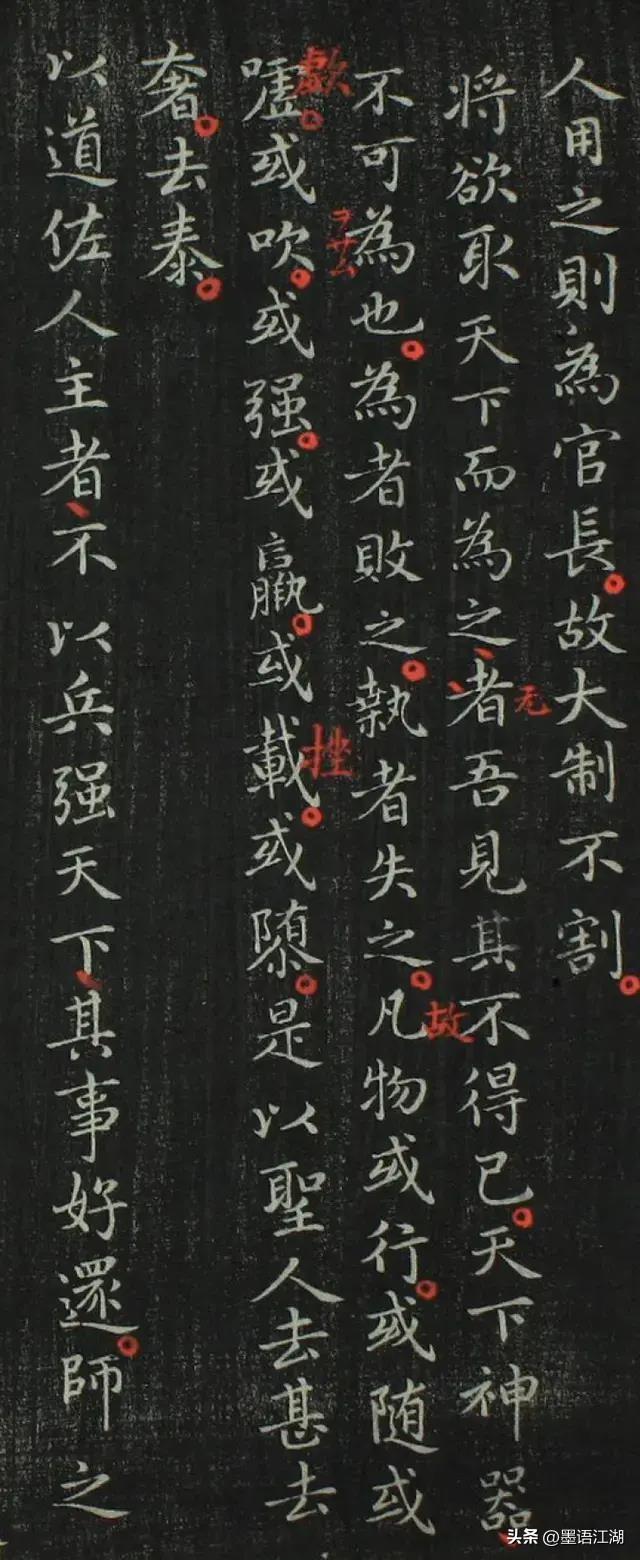 人用之則為官長故大制不割
将欲取天下而為之者吾見其不得已天下神器
不可為也為者敗之執者失之凡物或行或随或
嘘或吹或强或羸或載或隳是以聖人去甚去
奢去泰
以道佐人主者不以兵强天下其事好還師之
无
故
歔
挫
头条 @墨语江湖